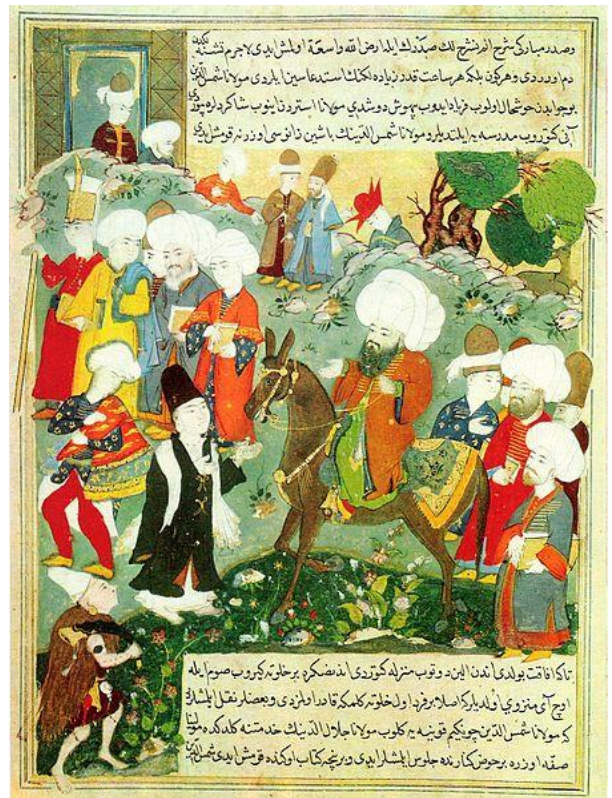 وصدر مبارکی شرح الم نشرح لك صدرك ایله ارض الله واسعة اولمش ایدی لاجرم تشنه لکدن
دم اوردی و هر کون بلکه هر ساعت قدرن زیاده لکنك استدعاسین ایلردی مولانا شمس الدین
بو جوابدن خوشحال اولوب فریاد ایدوب بیهوش دوشدی مولانا استردن اینوب شاکردلره بیوردی
آنی کوتوروب مدرسه یه ایلتدیلر و مولانا شمس الدینك باشین زانوسی اوزرنه قومش ایدی
تا که افاقت بولدی اندن الین دوتوب منزله کوتوردی اندنصکره بر خلوته کیروب صوم ایله
اوچ آی منزوی اولدیلر که اصلا بر فرد اول خلوته کلمکه قادر اولمزدی و بعضلر نقل ایلمشلردر
که مولانا شمس الدین چونکیم قونیه یه کلوب مولانا جلال الدینك خدمتنه کلدکده مولانا
صفه اوزره بر حوض کنارنده جلوس ایلمشلر ایدی و بر نیچه کتاب اوکنده قومش ایدی شمس الدین